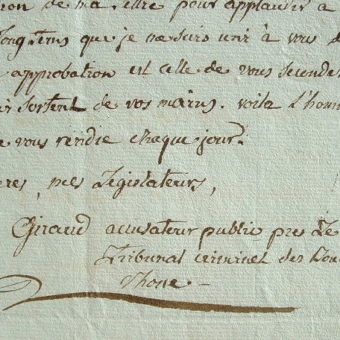 de ma       pour applaudir à
longtems que je ne suis unir à vous
approbation est celle de vous seconder
sortent de vos mains. voila l'hom
vous rendre chaque jour.
mes Législateurs,
Giraud accusateur public près le
Tribunal criminel des Bou
Rhone